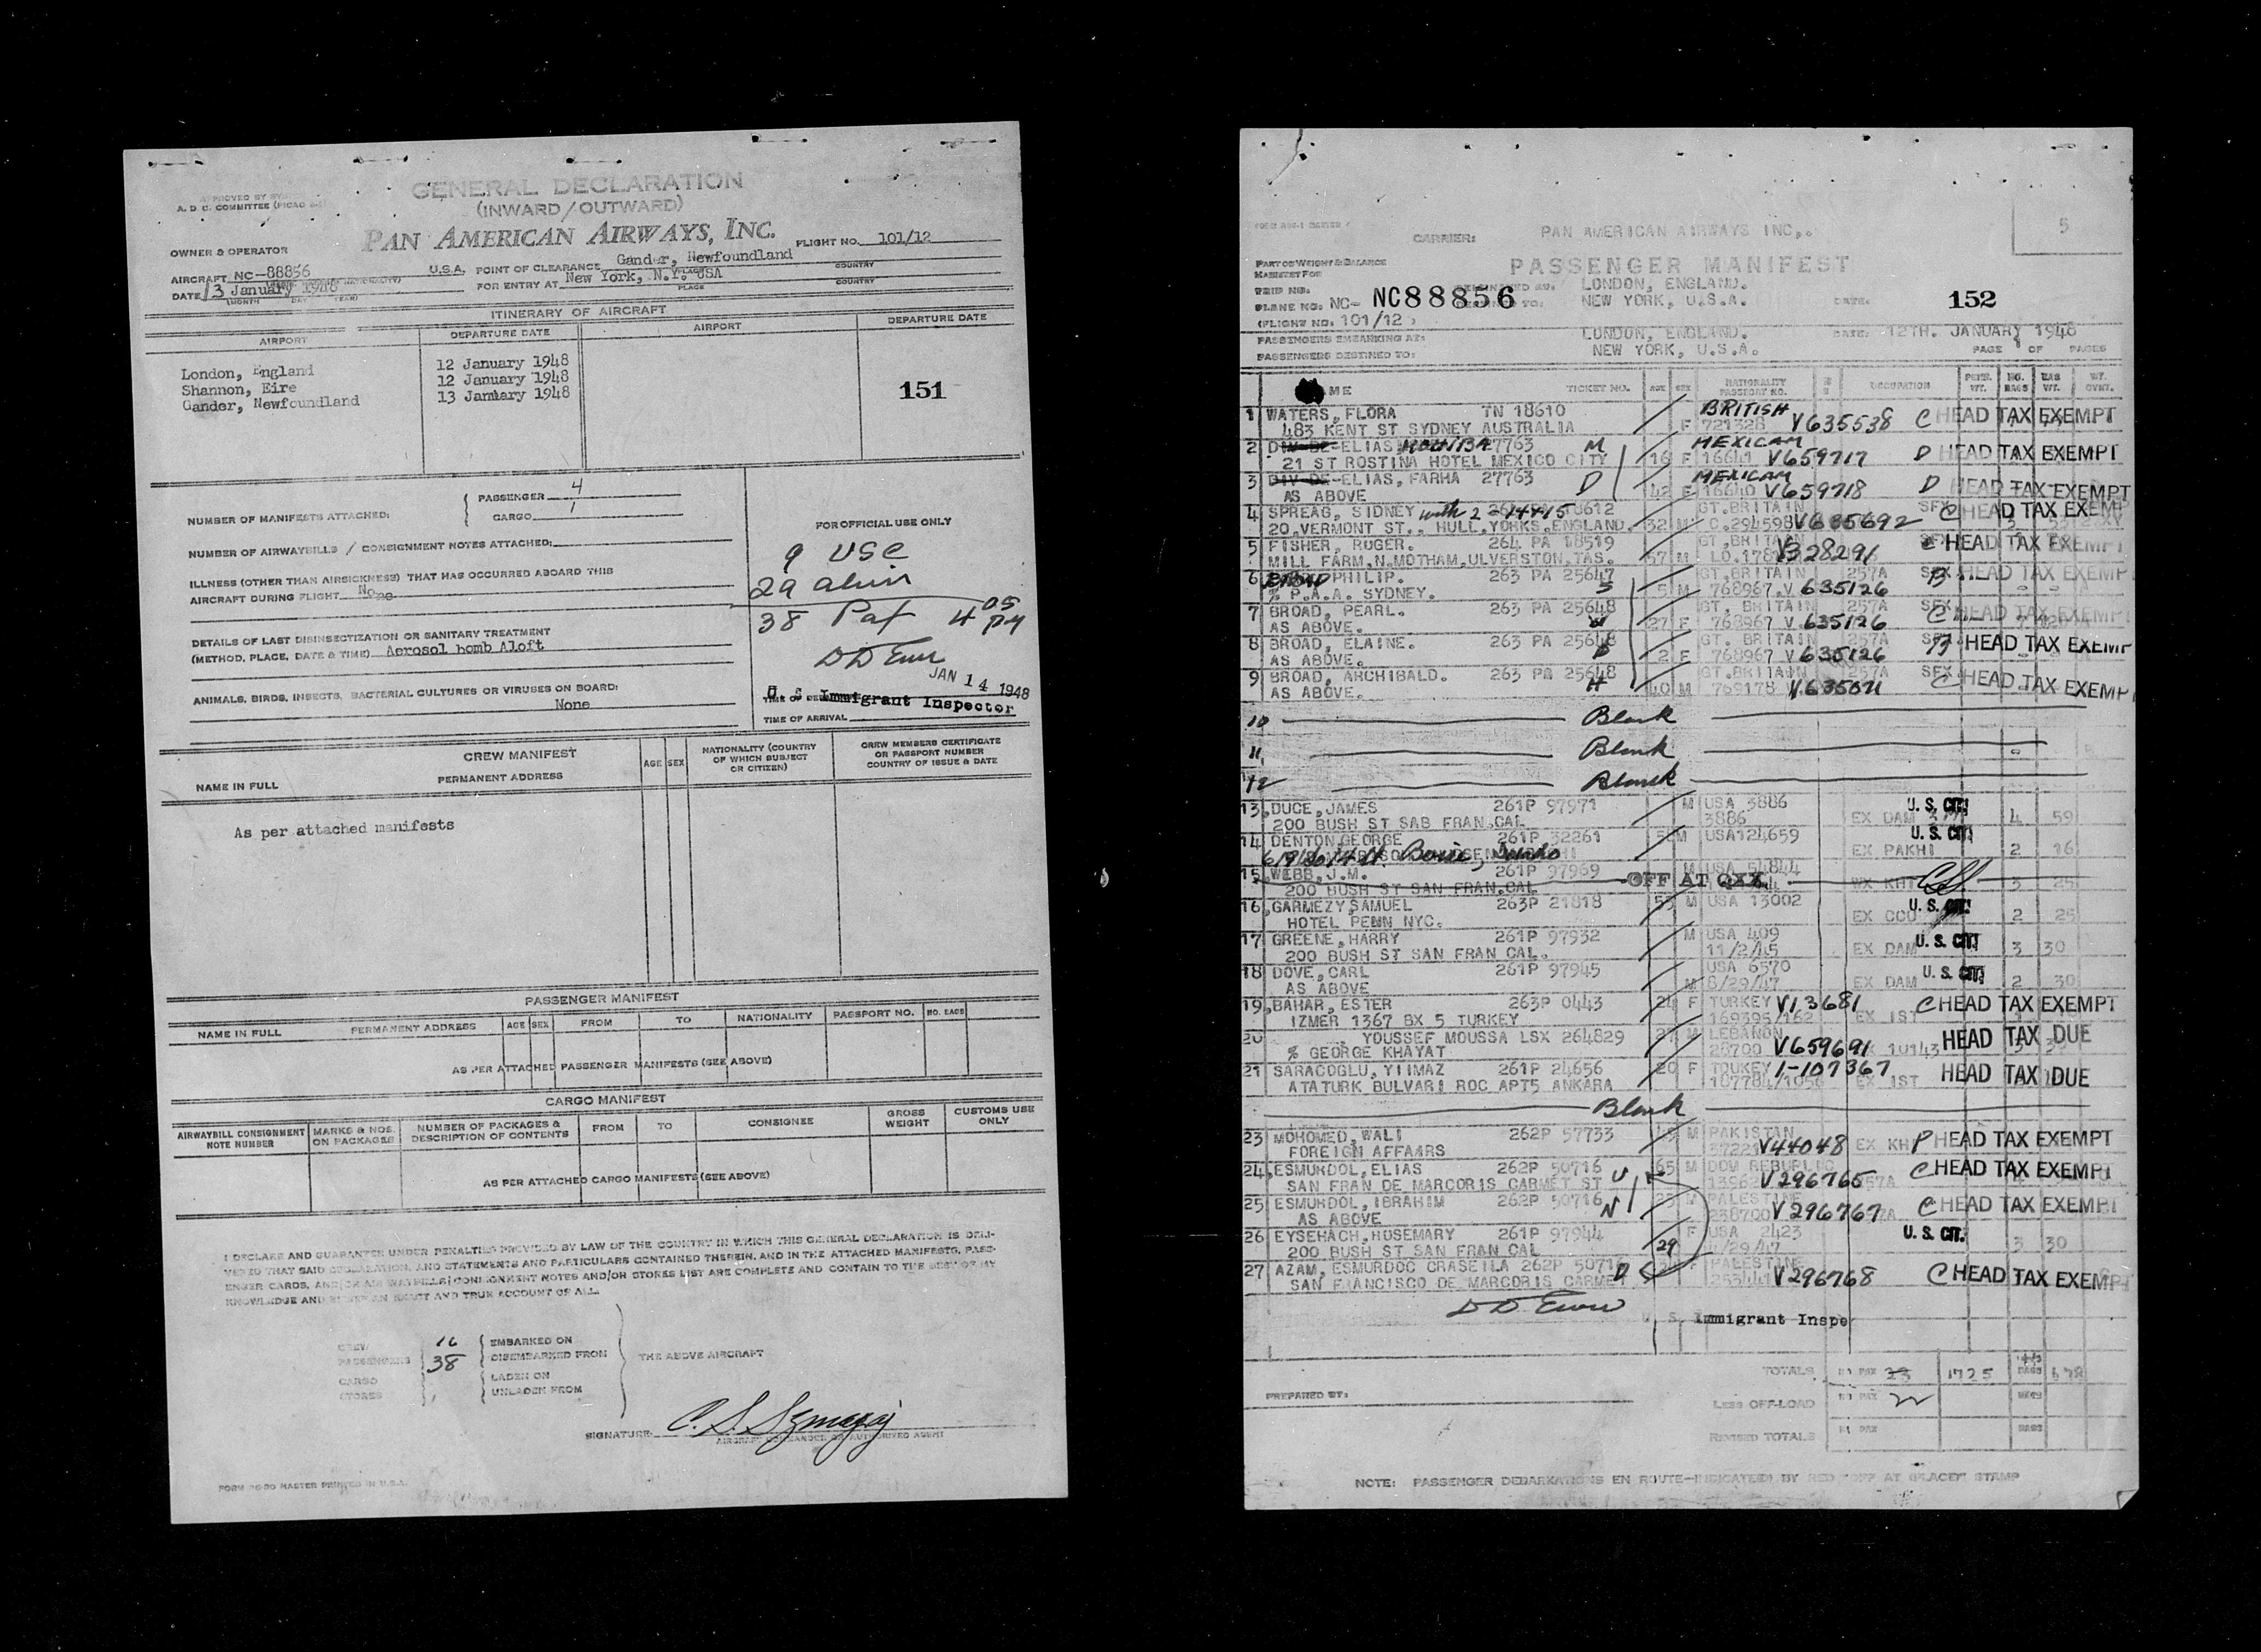 GENERAL DECLARATION
(INWARD/OUTWARD)
A. D. C. COMMITTEE
PAN AMERICAN AIRWAYS, INC.
OWNER & OPERATOR
FLIGHT NO. 101/12
AIRCRAFT NC-88856 U.S.A. POINT OF CLEARANCE Gander, Newfoundland
DATE 13 January 1948 FOR ENTRY AT New York, N.Y. USA
(MONTH DAY YEAR) PLACE COUNTRY
ITINERARY OF AIRCRAFT
AIRPORT DEPARTURE DATE AIRPORT DEPARTURE DATE
London, England 12 January 1948
Shannon, Eire 12 January 1948
Gander, Newfoundland 13 January 1948
151
NUMBER OF MANIFESTS ATTACHED: { PASSENGER 4
CARGO 1
NUMBER OF AIRWAYBILLS / CONSIGNMENT NOTES ATTACHED:
ILLNESS (OTHER THAN AIRSICKNESS) THAT HAS OCCURRED ABOARD THIS
AIRCRAFT DURING FLIGHT None
DETAILS OF LAST DISINSECTIZATION OR SANITARY TREATMENT
(METHOD, PLACE, DATE & TIME) Aerosol bomb Aloft
ANIMALS, BIRDS, INSECTS, BACTERIAL CULTURES OR VIRUSES ON BOARD:
None
FOR OFFICIAL USE ONLY
9 USC
29 alien
38 Pax 4
JAN 14 1948
U. S. Immigrant Inspector
TIME OF ARRIVAL
CREW MANIFEST
NAME IN FULL PERMANENT ADDRESS AGE SEX NATIONALITY (COUNTRY OF WHICH SUBJECT OR CITIZEN) CREW MEMBERS CERTIFICATE OR PASSPORT NUMBER COUNTRY OF ISSUE & DATE
As per attached manifests
PASSENGER MANIFEST
NAME IN FULL PERMANENT ADDRESS AGE SEX FROM TO NATIONALITY PASSPORT NO. NO. BAGS
AS PER ATTACHED PASSENGER MANIFESTS (SEE ABOVE)
CARGO MANIFEST
AIRWAYBILL CONSIGNMENT NOTE NUMBER MARKS & NOS. ON PACKAGES NUMBER OF PACKAGES & DESCRIPTION OF CONTENTS FROM TO CONSIGNEE GROSS WEIGHT CUSTOMS USE ONLY
AS PER ATTACHED CARGO MANIFESTS (SEE ABOVE)
I DECLARE AND GUARANTEE UNDER PENALTIES PROVIDED BY LAW OF THE COUNTRY IN WHICH THIS GENERAL DECLARATION IS DELI-
VERED THAT SAID DECLARATION, AND STATEMENTS AND PARTICULARS CONTAINED THEREIN, AND IN THE ATTACHED MANIFESTS, PASS-
ENGER CARDS, AND/OR AIR WAYBILLS/CONSIGNMENT NOTES AND/OR STORES LIST ARE COMPLETE AND CONTAIN TO THE BEST OF MY
KNOWLEDGE AND AN EXACT AND TRUE ACCOUNT OF ALL.
CREW EMBARKED ON
PASSENGERS 38 DISEMBARKED FROM THE ABOVE AIRCRAFT
CARGO LADEN ON
STORES UNLADEN FROM
SIGNATURE:
AIRCRAFT COMMANDER OR AUTHORIZED AGENT
5
CARRIER: PAN AMERICAN AIRWAYS INC,.
PART OF WEIGHT & BALANCE
MANIFEST FOR
PASSENGER MANIFEST
TRIP NO. LONDON, ENGLAND.
PLANE NO. NC- NC88856 NEW YORK, U.S.A. DATE: 152
(FLIGHT NO: 101/12 )
PASSENGERS EMBARKING AT: LONDON, ENGLAND. DATE: 12TH. JANUARY 1948
PASSENGERS DESTINED TO: NEW YORK, U.S.A. PAGE OF PAGES
TICKET NO. AGE SEX NATIONALITY PASSPORT NO. OCCUPATION
1 WATERS, FLORA TN 18610 BRITISH
483 KENT ST SYDNEY AUSTRALIA F 721328 V635538 C HEAD TAX EXEMPT
2 ELIAS 27763 M MEXICAN
21 ST ROSTINA HOTEL MEXICO CITY 16 F 16641 V659717 D HEAD TAX EXEMPT
3 ELIAS, FARHA 27763 D MEXICAN
AS ABOVE 42 F 16640 V659718 D HEAD TAX EXEMPT
4 SPREAG, SIDNEY 18612 GT.BRITAIN
20,VERMONT ST., HULL,YORKS.ENGLAND. 32 M C.294598 V635692 C HEAD TAX EXEMP
5 FISHER, RUGER. 264 PA 18519 GT.BRITAIN
MILL FARM,N.MOTHAM,ULVERSTON,TAS. 57 M V328291 C HEAD TAX EXEMPT
6 BROAD PHILIP. 263 PA 25647 GT.BRITAIN 257A
% P.A.A. SYDNEY. S 5 M 768967.V 635126 HEAD TAX EXEMP
7 BROAD, PEARL. 263 PA 25648 GT. BRITAIN 257A
AS ABOVE. W 27 F 768967 V 635126 C HEAD TAX EXEMPT
8 BROAD, ELAINE. 263 PA 25648 GT. BRITAIN 257A
AS ABOVE. D 2 F 768967 V 635126 HEAD TAX EXEMP
9 BROAD, ARCHIBALD. 263 PA 25648 GT.BRITAIN 257A
AS ABOVE. H 40 M 769178 C HEAD TAX EXEMP
10 Blank
11 Blank
12 Blank
13 DUCE,JAMES 261P 97971 M USA 3886 U. S. CIT.
200 BUSH ST SAB FRAN,CAL 3886 EX DAM 4 59
14 DENTON,GEORGE 261P 32261 M USA124659 U. S. CIT.
EX PAKHI 2 16
15 WEBB,J.M. 261P 97969 M USA 54844
200 BUSH ST SAN FRAN,CAL OFF AT QXX 3 25
16 GARMEZY,SAMUEL 263P 21818 53 M USA 13002 U. S. CIT.
HOTEL PENN NYC. EX CCU 2 25
17 GREENE,HARRY 261P 97932 M USA 409
200 BUSH ST SAN FRAN CAL. 11/2/45 EX DAM U. S. CIT. 3 30
18 DOVE,CARL 261P 97945 USA 6570 U. S. CIT.
AS ABOVE M 8/29/47 EX DAM 2 30
19 BAHAR, ESTER 263P 0443 24 F TURKEY V13681 C HEAD TAX EXEMPT
IZMER 1367 BX 5 TURKEY 169395/162 EX IST
20 YOUSSEF MOUSSA LSX 264829 M LEBANON HEAD TAX DUE
% GEORGE KHAYAT 28700 V659691
21 SARACOGLU, YIIMAZ 261P 24656 20 F TOUKEY 1-107367 HEAD TAX DUE
ATATURK BULVARI ROC APT5 ANKARA 187784/1056 EX IST
Blank
23 MOHOMED,WALI 262P 57733 M PAKISTAN
FOREIGN AFFAARS V44048 EX KHI P HEAD TAX EXEMPT
24 ESMURDOL,ELIAS 262P 50716 65 M C HEAD TAX EXEMPT
SAN FRAN DE MARCORIS CARMET ST V296765
25 ESMURDOL, IBRAHIM 262P 50716 N M PALESTINE
AS ABOVE 238700 V296767 C HEAD TAX EXEMPT
26 EYSEHACH,ROSEMARY 261P 97944 F USA 2423 U. S. CIT.
200 BUSH ST SAN FRAN CAL 29 /29/47 3 30
27 AZAM, ESMURDOC GRASEILA 262P 50716 F PALESTINE
SAN FRANCISCO DE MARCORIS CARMET D V296768 C HEAD TAX EXEMPT
U. S. Immigrant Inspe
TOTALS NO PAX 23 1725 BAGS 678
PREPARED BY:
LESS OFF-LOAD NO PAX BAGS
REVISED TOTALS NO PAX BAGS
NOTE: PASSENGER DEBARKATIONS EN ROUTE-INDICATED BY RED "OFF AT (PLACE)" STAMP